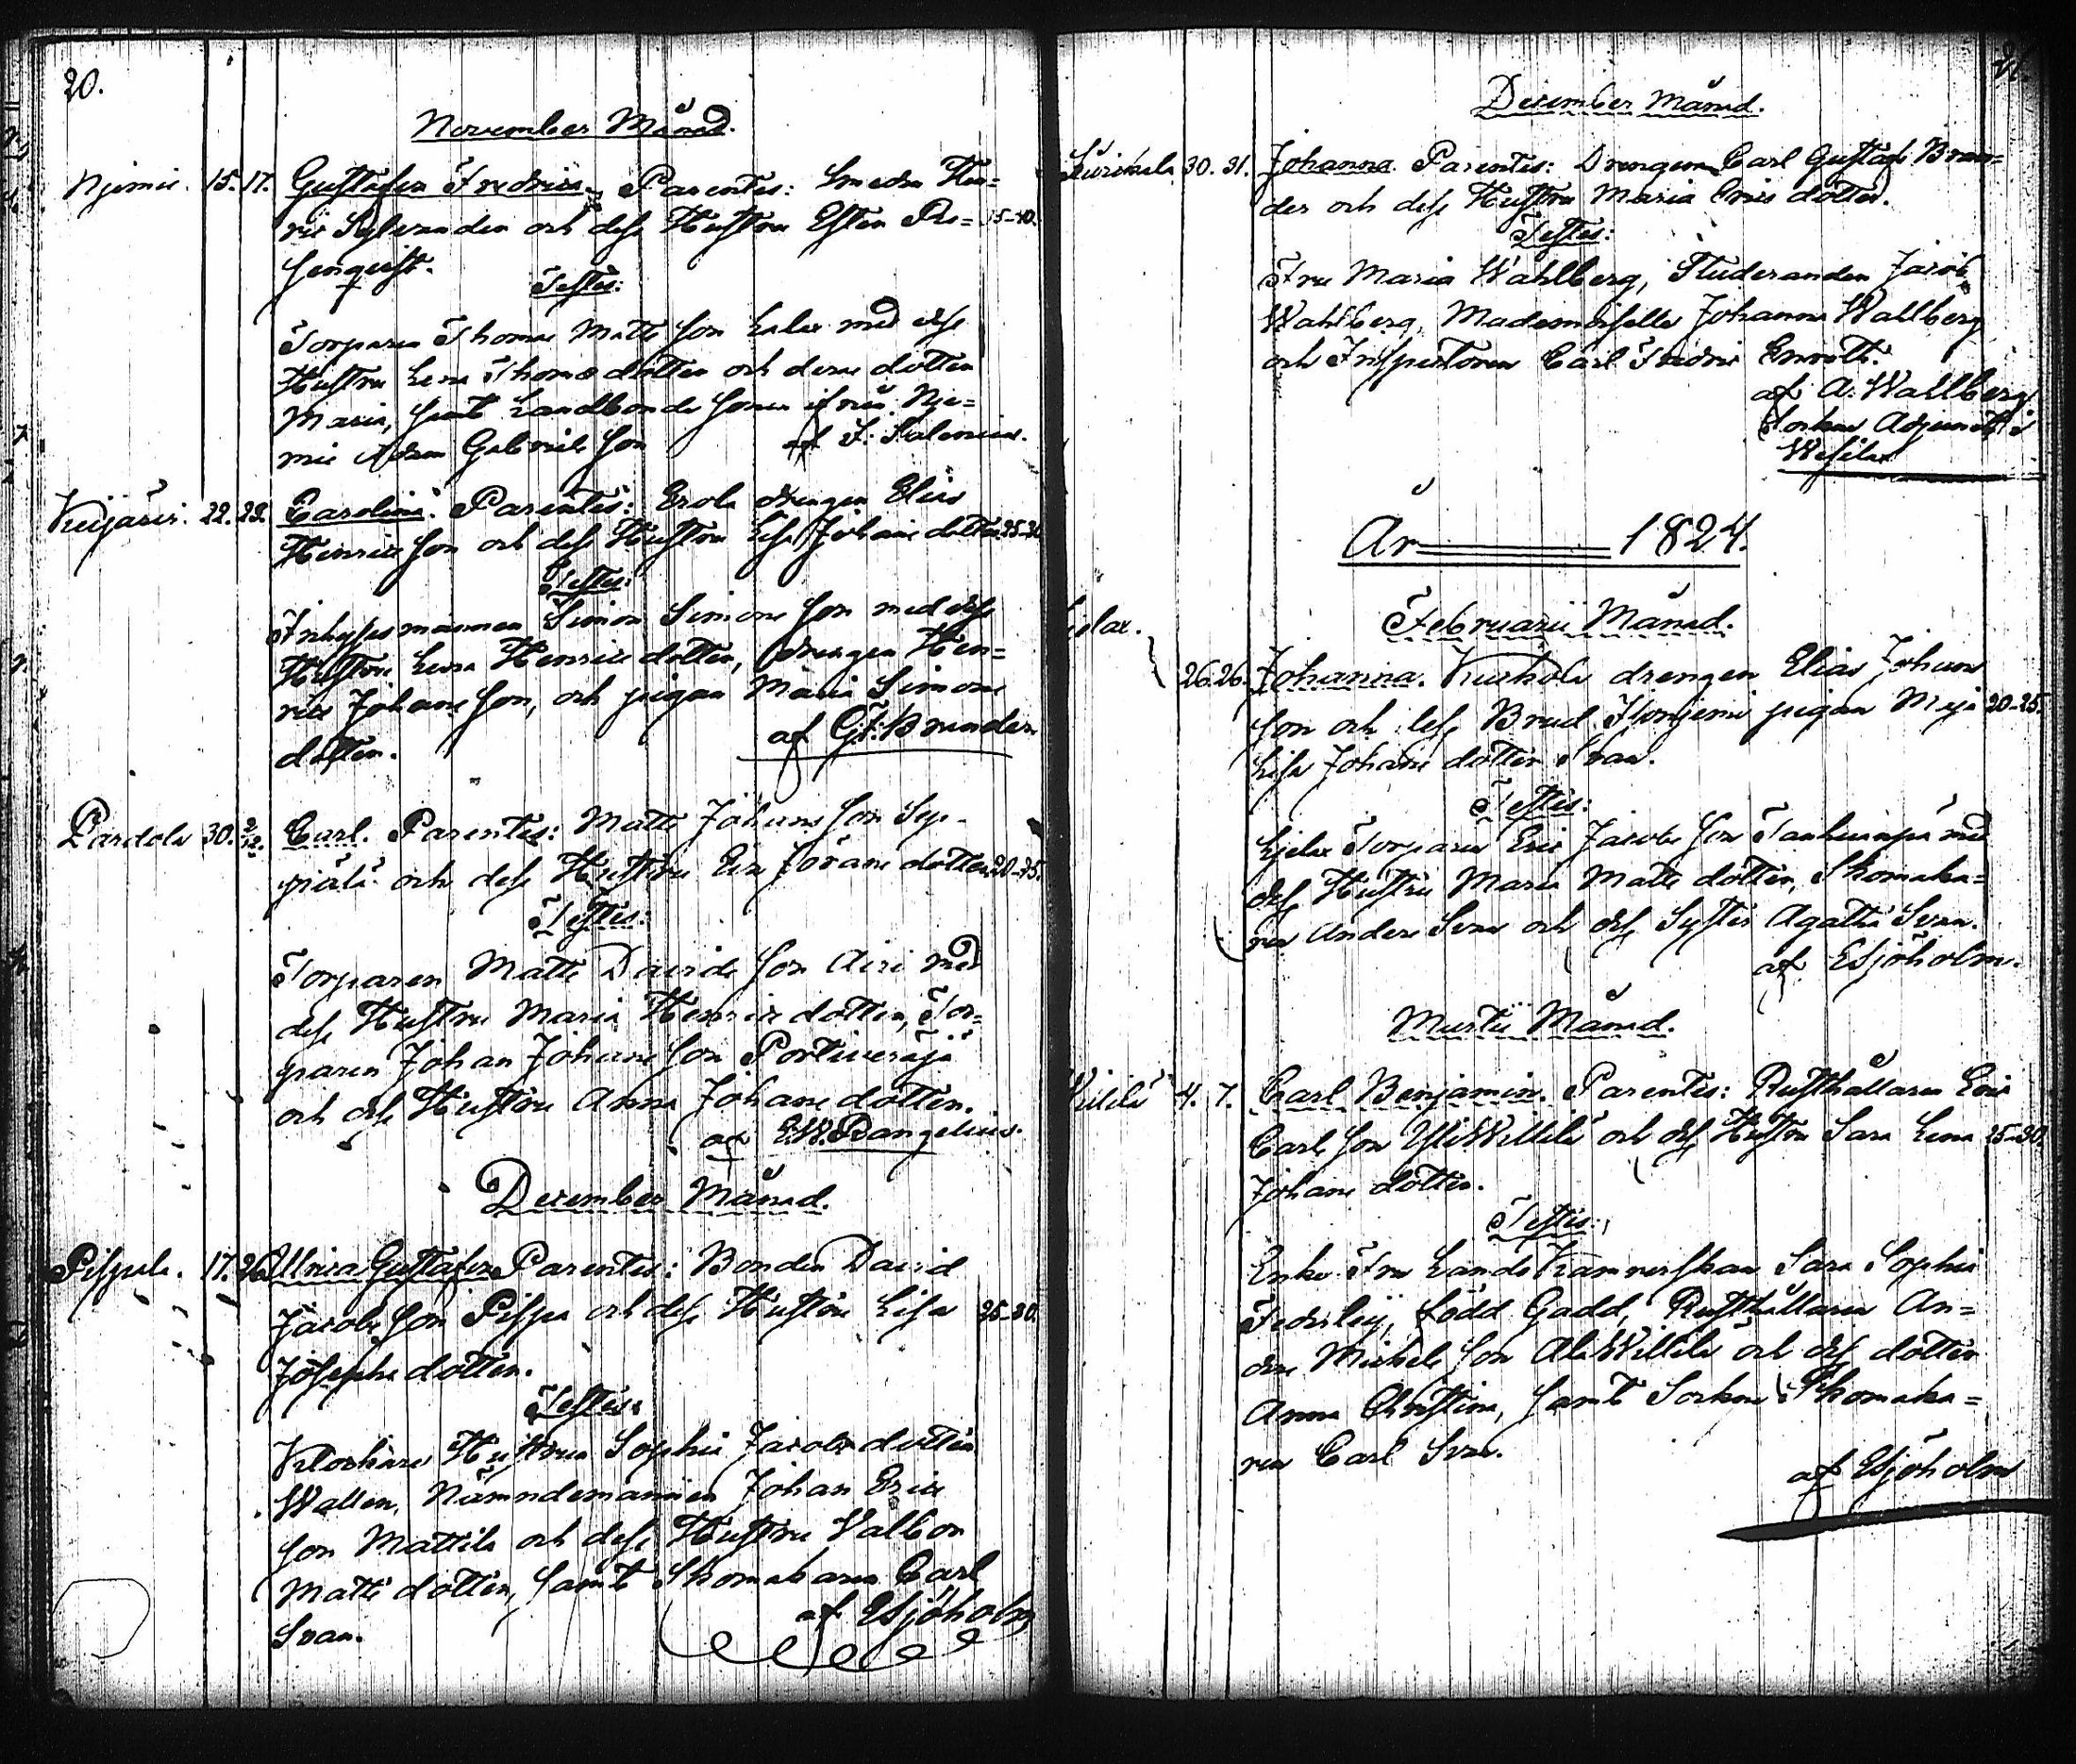 20.
November Månad.
Njemis. 15. 17. Gustafva Fredrica. Parentes: Smeden Hen=
ric Sylvander och dess Hustru Ester Ro= 35-40.
senquist.
Testes:
Torparen Thomas Matts son med dess
Hustru Lena Thomæ dotter och deras dotter
Maria, samt Landbonde sonen ifrån Nje=
mis Adam Gabriels son af F. Salenius.
22. 23. Carolina. Parentes: Erola drengen Elias
Henrics son och dess Hustru Lisa Johans dotter
Testes:
Inhysesmannen Simon Simons son med dess
Hustru Lena Henrics dotter, drengen Hen=
ric Johans son, och pigan Maria Simons
dotter. af G. F. Brander
Pardola 30. 2/12. Carl. Parentes: Matts Johans son Sep-
och dess Hustru Eva Jörans dotter
Testes:
Torparen Matts Davids son Airi med
dess Hustru Maria Henrics dotter, Tor=
paren Johan Johans son
och dess Hustru Anna Johans dotter.
af EW. Rangelius.
December Månad.
Pispala. 17. 26. Ulrica Gustafva Parentes: Bonden David
Jacobs son Pispa och dess Hustru Lisa 25-30.
Josephs dotter.
Testes:
Klockars Hustrun Sophia Jacobs dotter
Wallen, Nämndemannen Johan Erics
son Mattila och dess Hustru Valbor
Matts dotter, samt Skomakaren Carl
Svan. af ESjöholm
21.
December Månad.
30. 31. Johanna. Parentes: Drengen Carl Gustaf Bran=
der och dess Hustru Maria Erics dotter.
Testes:
Fru Maria Wahlberg, Studeranden Jacob
Wahlberg, Mademoiselle Johanna Wahlberg
och Inspectoren Carl Fredric Enroth.
af A. Wahlberg
Sockne Adjunct i
År 1824.
Februarii Månad.
26. 26. Johanna. drengen Elias Johans
son och dess Brud pigan Maja 20-25.
Lisa Johans dotter Svan.
Testes:
Torparen Eric Jacobs son med
dess Hustru Maria Matts dotter, Skomaka=
ren Anders Svan och dess Syster Agatha Svan.
af ESjöholm.
Martii Månad.
4. 7. Carl Benjamin. Parentes: Rusthållaren Eric
Carls son YliWillilä och dess Hustru Sara Lena 25-30.
Johans dotter.
Testes:
Enke Fru Lands Kamrerskan Sara Sophia
född Gadd, Rusthållaren An=
ders Michels son AlaWillilä och dess dotter
Anna Christina, samt Sockne Skomaka=
ren Carl Svan.
af ESjöholm